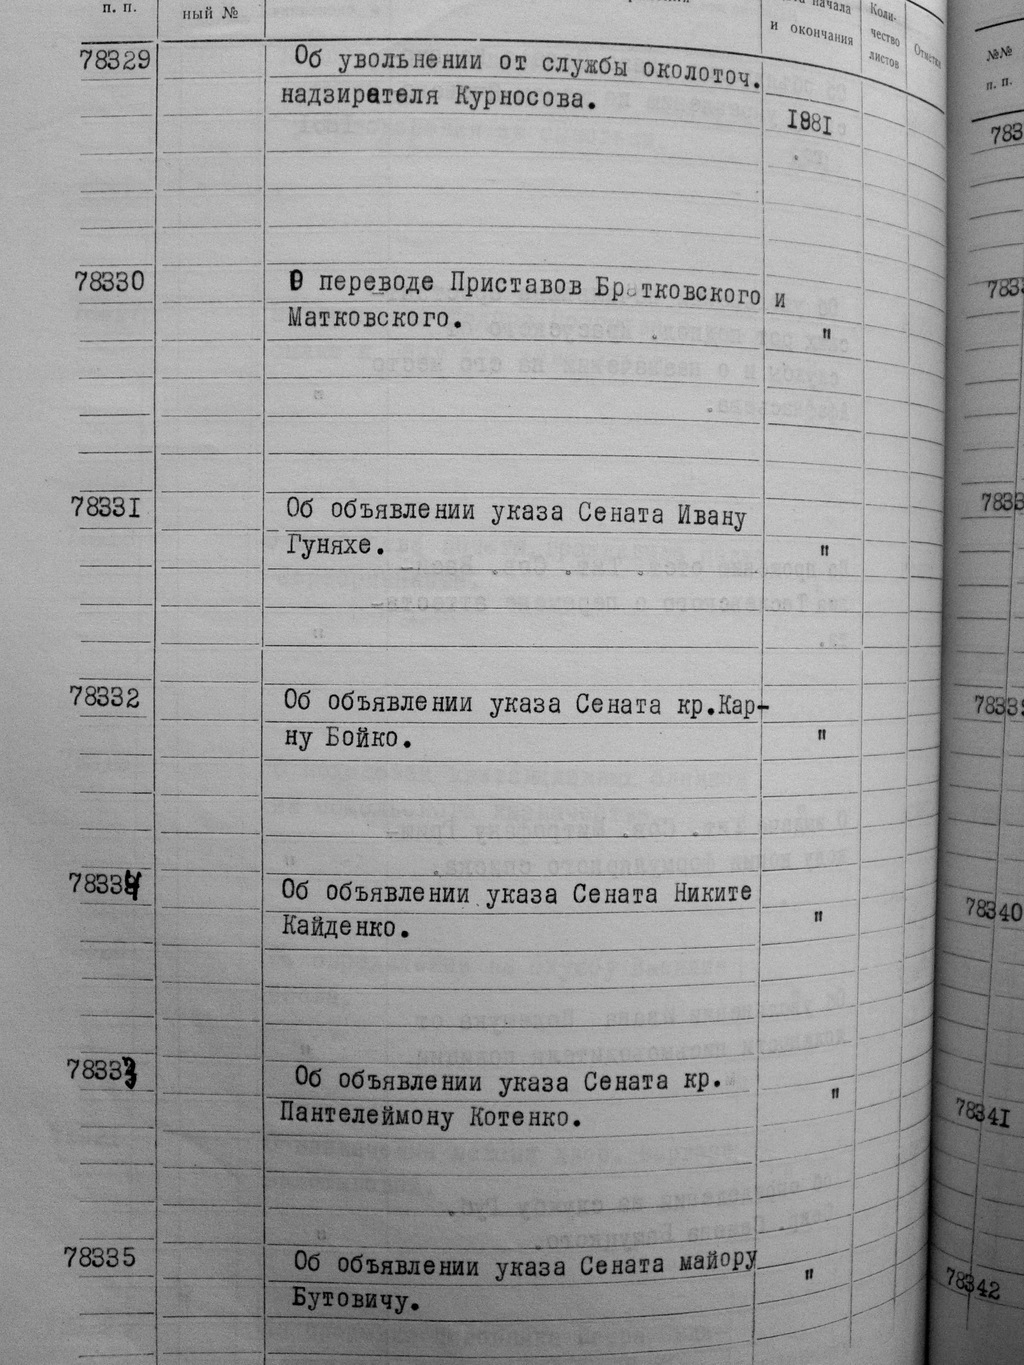 п. п.
ный №
начала
и окончания
Коли-
чество
листов
Отметка
78329
Об увольнении от службы околоточ.
надзирателя Курносова.
1881
78330
О переводе Приставов Братковского и
Матковского.
"
78331
Об объявлении указа Сената Ивану
Гуняхе.
"
78332
Об объявлении указа Сената кр.Кар-
ну Бойко.
"
78334
Об объявлении указа Сената Никите
Кайденко.
"
78333
Об объявлении указа Сената кр.
Пантелеймону Котенко.
"
78335
Об объявлении указа Сената майору
Бутовичу.
"
№№
п. п.
78340
78341
78342